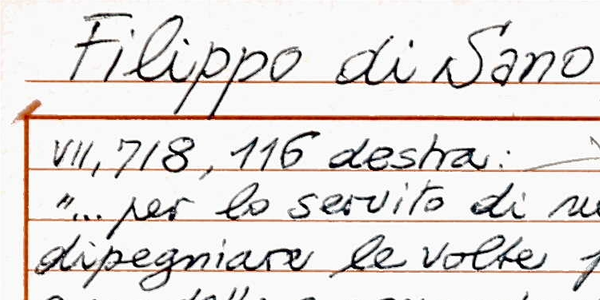 Filippo di Sano
VII, 718, 116 destra:
"... per lo servito di
dipegniare le volte